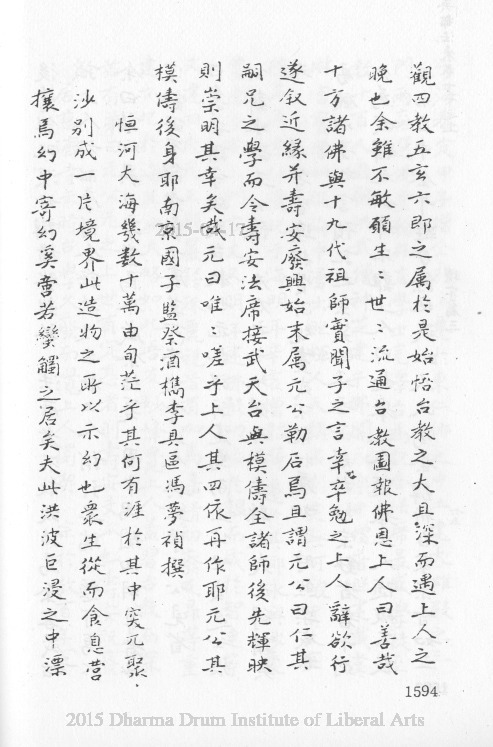 觀四教五玄六即之属於是始悟台教之大且深而遇上人之
晚也余雖不敏願生〻世〻流通台教圖報佛恩上人曰善哉
十方諸佛與十九代祖師實聞子之言幸卒勉之上人辭欲行
遂叙近緣并壽安廢興始末属元公勒石焉且謂元公曰仁其
嗣兄之學而令壽安法席接武天台與模儔全諸師後先輝映
則崇明其幸矣哉元曰唯〻嗟乎上人其四依再作耶元公其
模儔後身耶南京國子監祭酒檇李具區馮夢禎撰
恒河大海幾数十萬由旬茫乎其何有涯於其中突兀聚
沙别成一片境界此造物之所以示幻也衆生從而食息營
攘焉幻中寄幻奚啻若蠻觸之居矣夫此洪波巨浸之中漂
1594
2015 Dharma Drum Institute of Liberal Arts